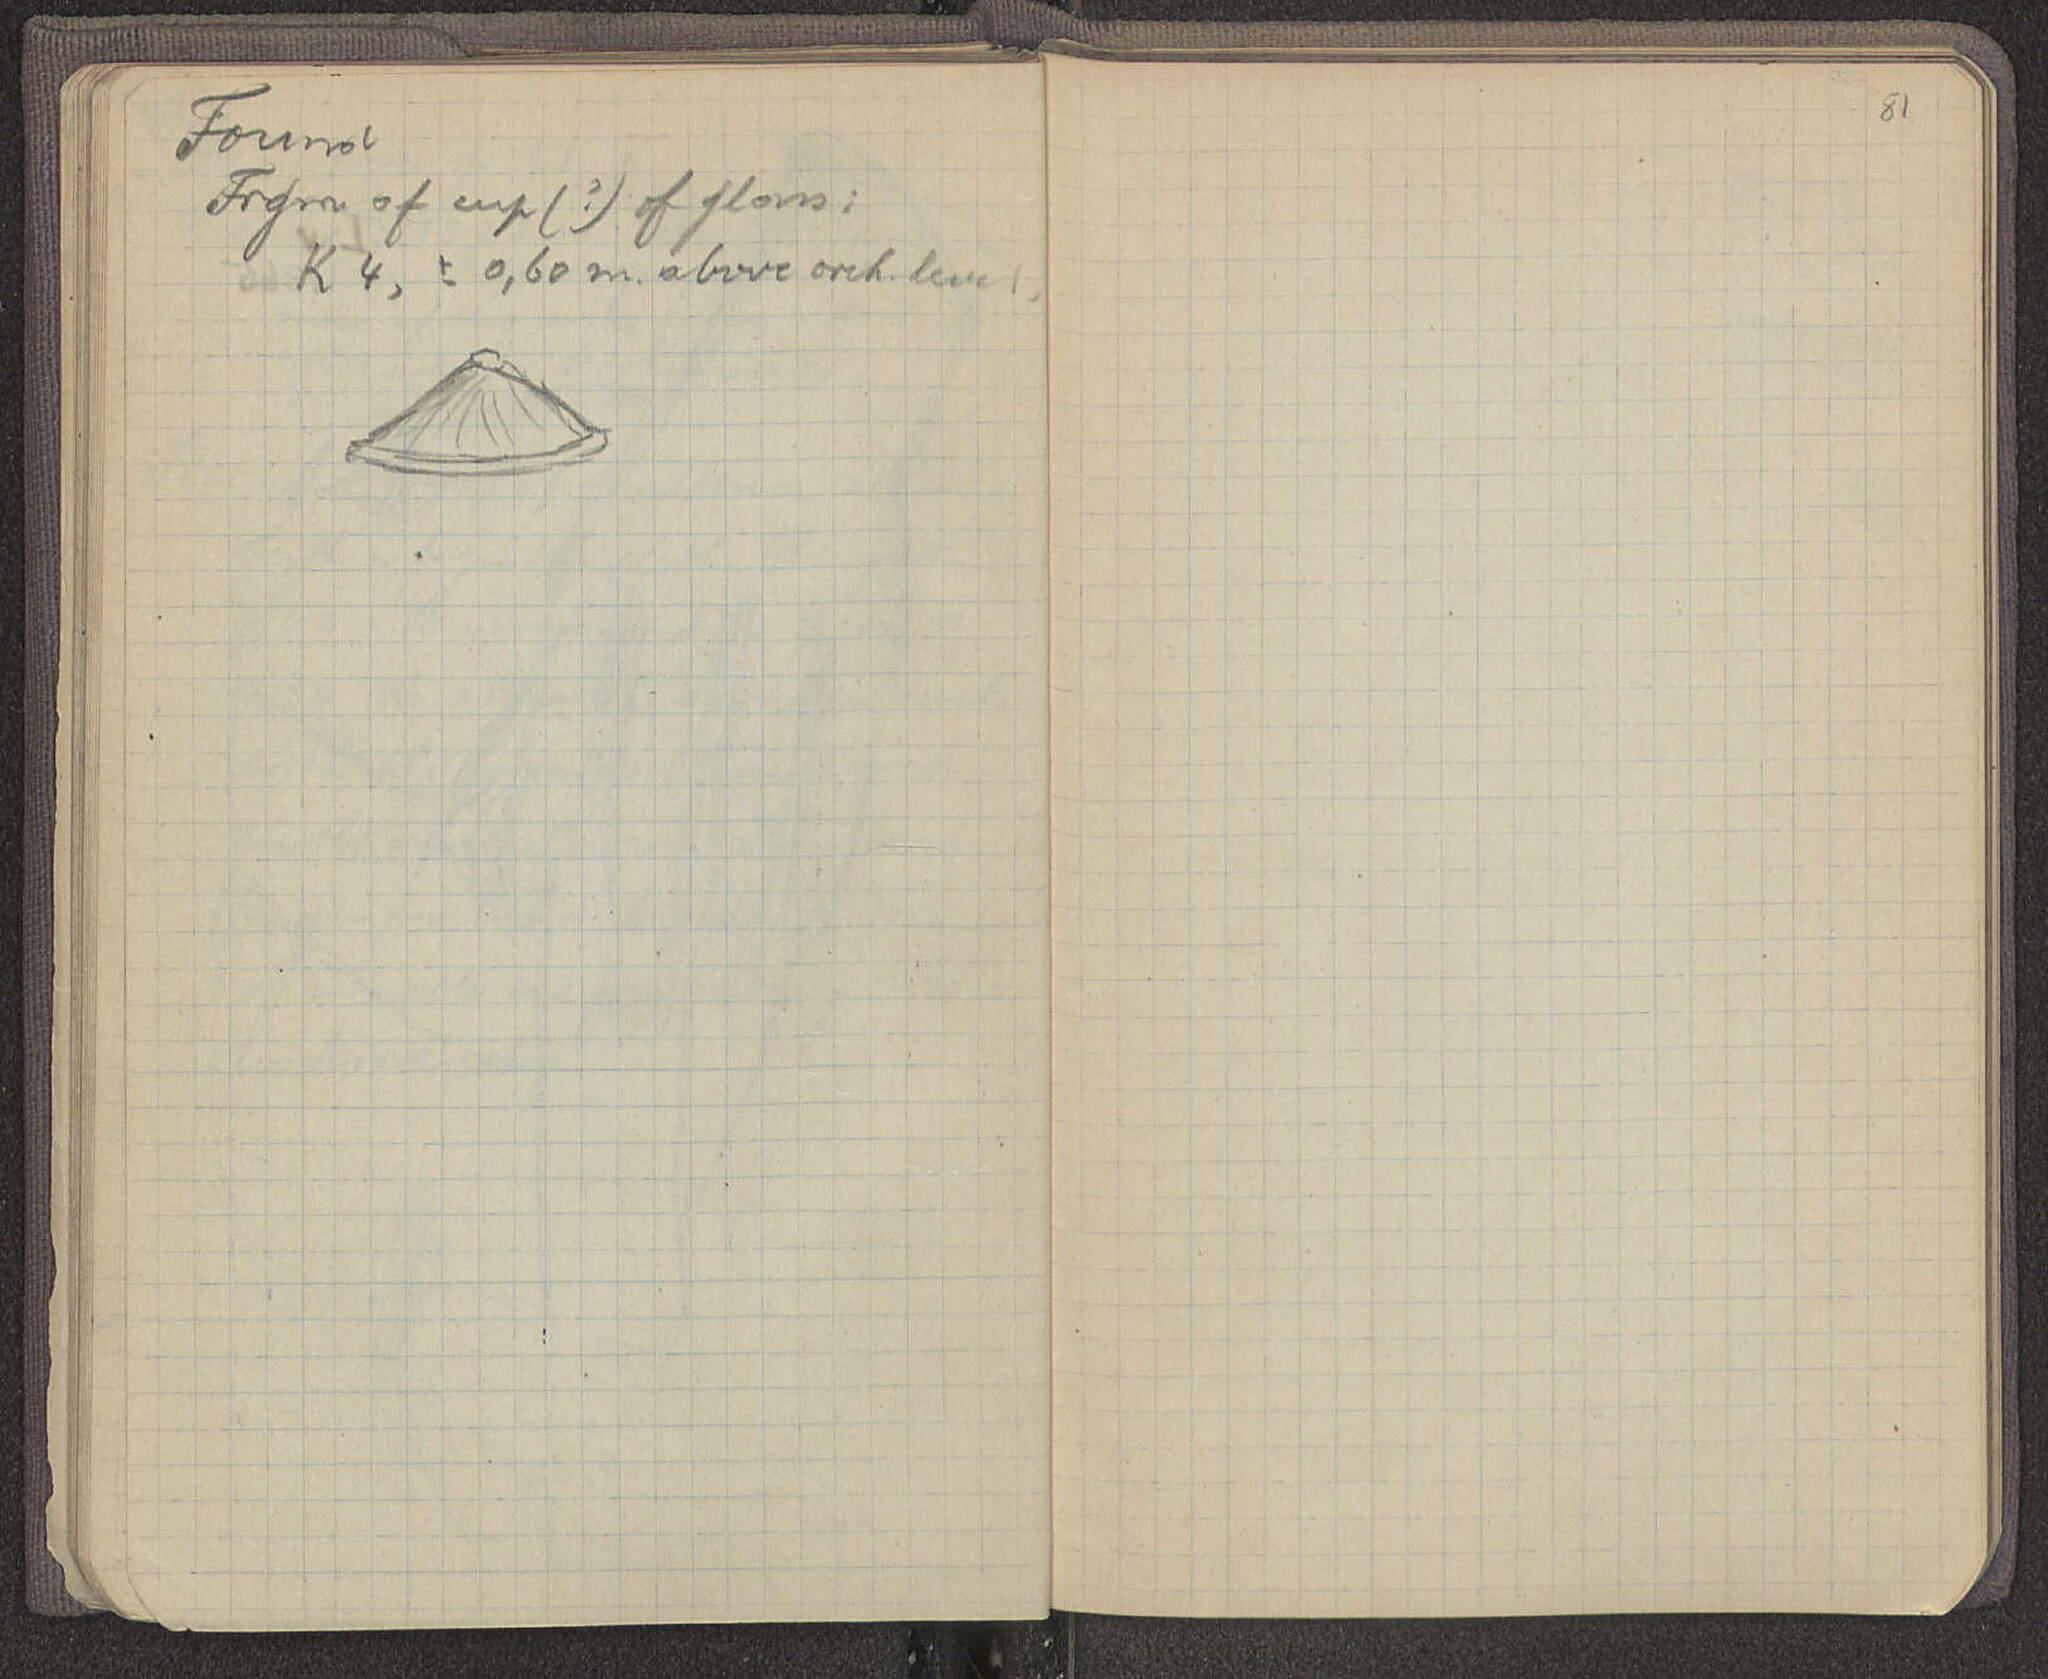 Found
Frgm of cup (?) of glass:
K 4, ± 0,60 m. above orch. level.
81